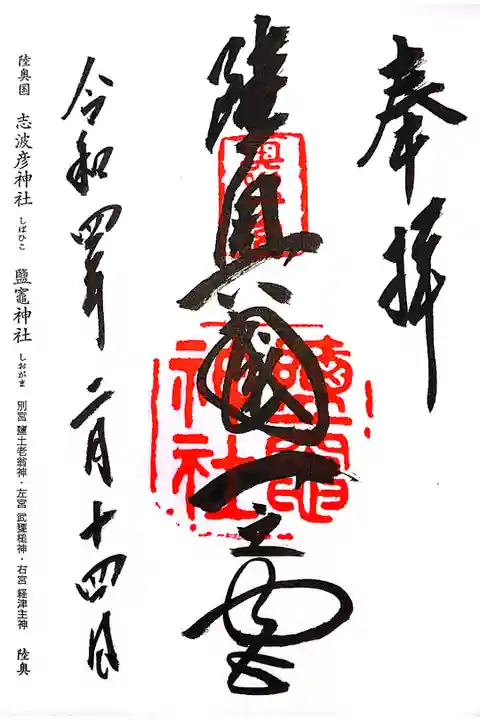 奉拝
陸奥國一之宮
鹽竈神社
令和四年二月十四日
陸奥国 志波彦神社 しばひこ 鹽竈神社 しおがま 別宮 鹽土老翁神・左宮 武甕槌神・右宮 経津主神 陸奥